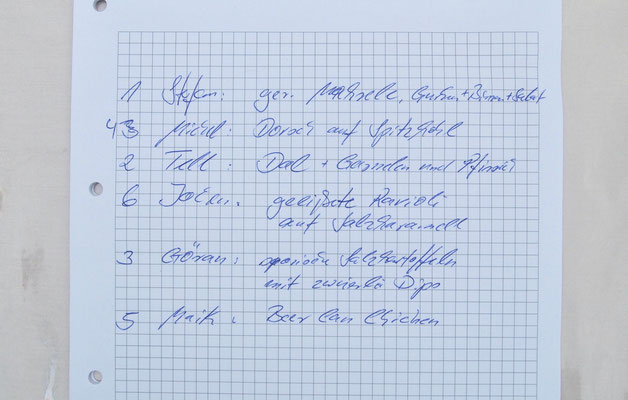 1 Stefan: ger. Makrele, Gurken+Birnen+Salat
4 Michel: Dorsch auf Spitzkohl
2 Till: Dal + Garnelen und Pfirsich
6 Jochen: gefüllte Ravioli
auf Salzkaramell
3 Göran: Salzkartoffeln
mit zweierlei Dips
5 Maik: Beer Can Chicken